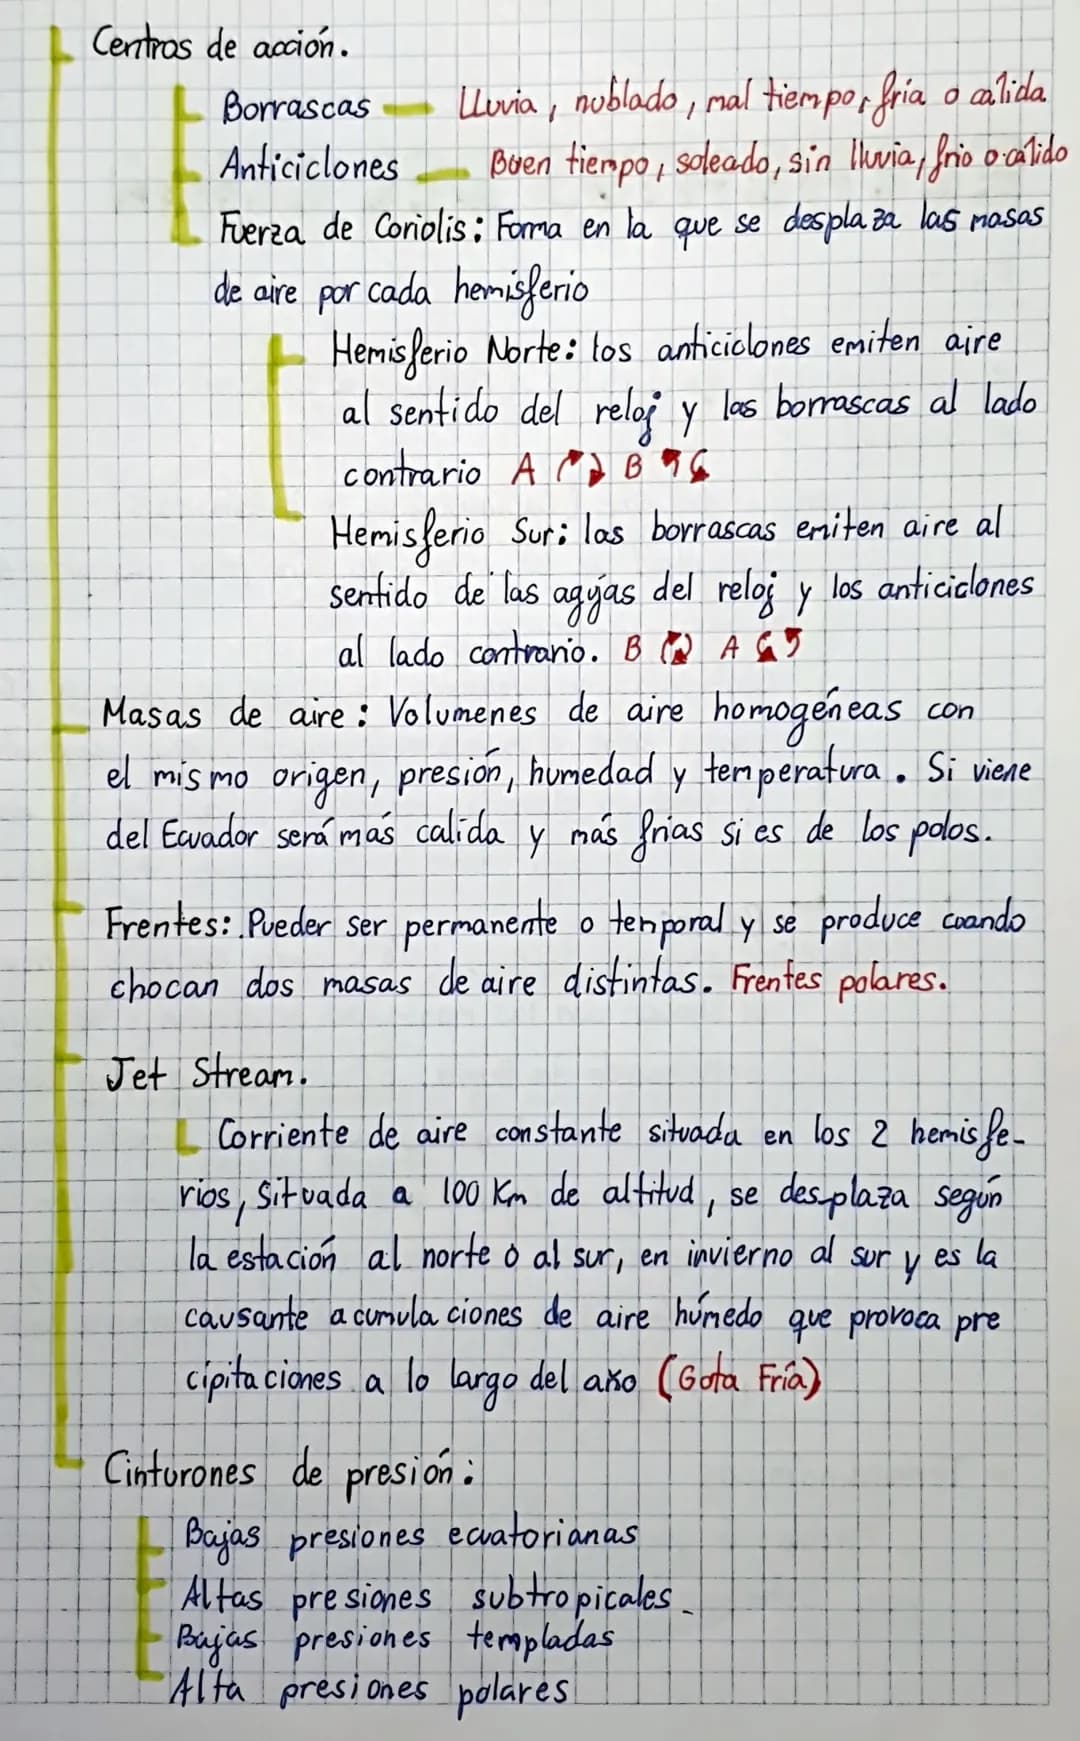 Centros de acción.
Borrascas — Lluvia, nublado, mal tiempo, fría o calida
Anticiclones — Buen tiempo, soleado, sin lluvia, frio o calido
Fuerza de Coriolis: Forma en la que se desplaza las masas
de aire por cada hemisferio
Hemisferio Norte: los anticiclones emiten aire
al sentido del reloj y las borrascas al lado
contrario A B
Hemisferio Sur: las borrascas emiten aire al
sentido de las agujas del reloj y los anticiclones
al lado contrario. B A
Masas de aire: Volumenes de aire homogéneas con
el mismo origen, presión, humedad y temperatura. Si viene
del Ecuador será más calida y más frias si es de los polos.
Frentes: Pueder ser permanente o temporal y se produce cuando
chocan dos masas de aire distintas. Frentes polares.
Jet Stream.
Corriente de aire constante situada en los 2 hemisfe-
rios, situada a 100 Km de altitud, se desplaza según
la estación al norte o al sur, en invierno al sur y es la
causante acumulaciones de aire húmedo que provoca pre
cipitaciones a lo largo del año (Gota Fría)
Cinturones de presión:
Bajas presiones ecuatorianas
Altas presiones subtropicales
Bajas presiones templadas
Alta presiones polares